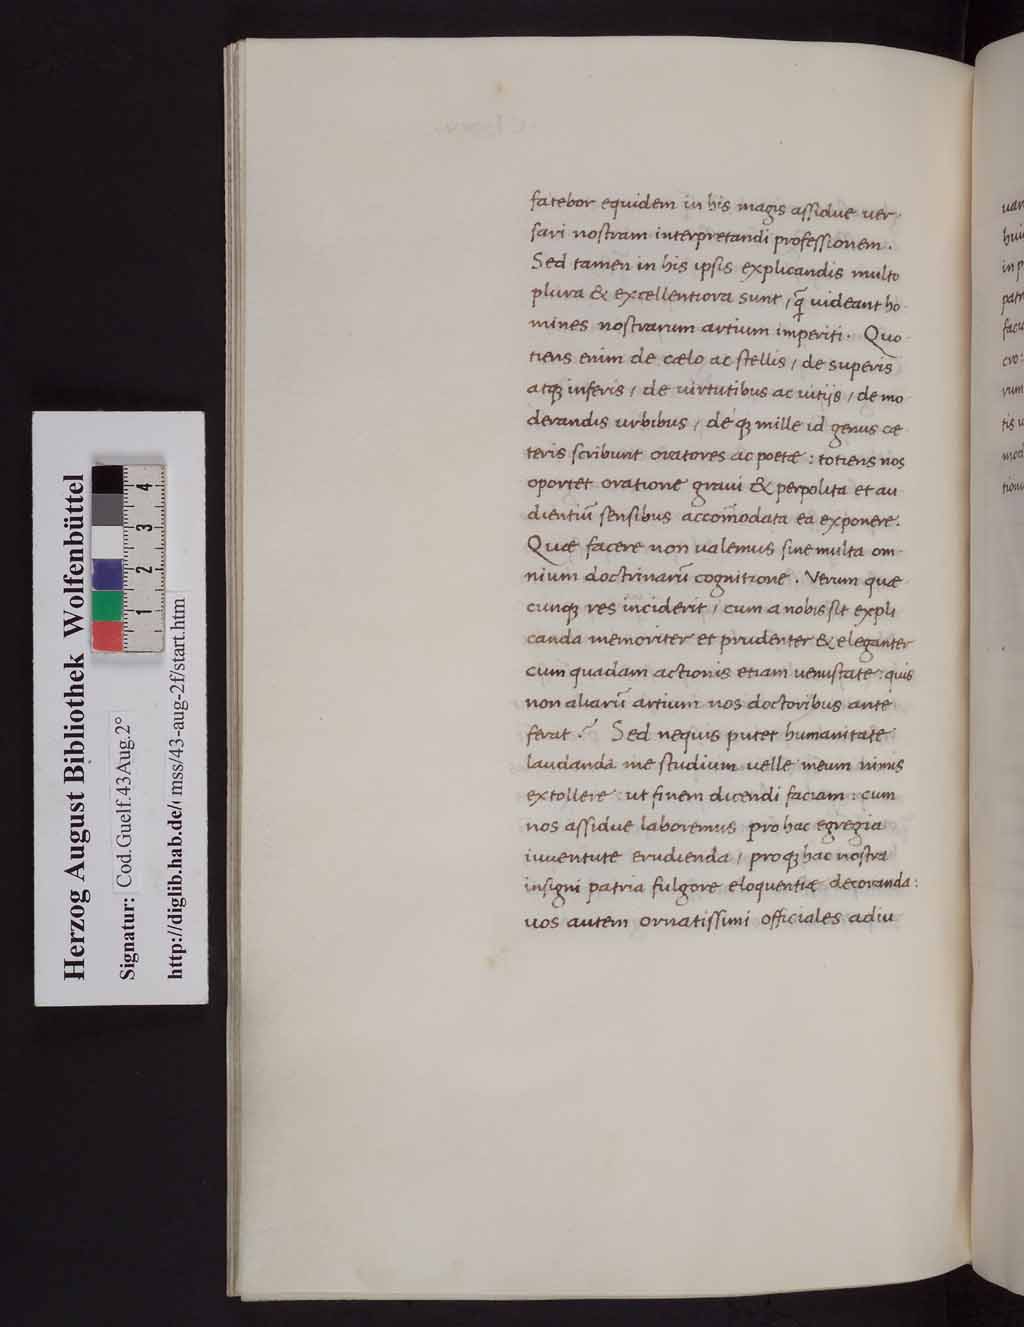 fatebor equidem in his magis assidue uer-
sari nostram interpretandi professionem.
Sed tamen in his ipsis explicandis multo
plura & excellentiora sunt / q̄ uideant ho-
mines nostrarum artium imperiti. Quo-
tiens enim de cælo ac stellis / de superis
atqꝫ inferis / de uirtutibus ac uitijs / de mo
derandis urbibus / deqꝫ mille id genus cæ
teris scribunt oratores ac poetæ: totiens nos
oportet oratione graui & perpolita et au
dientiū sensibus accom̄odata ea exponere.
Quæ facere non ualemus sine multa om-
nium doctrinarū cognitione. Verum quæ
cunqꝫ res inciderit / cum a nobis sit expli
canda memoriter et prudenter & eleganter
cum quadam actionis etiam uenustate: quis
non aliarū artium nos doctoribus ante
ferat? Sed nequis putet humanitate
laudanda me studium uelle meum nimis
extollere: ut finem dicendi faciam: cum
nos assidue laboremus pro hac egregia
iuuentute erudienda / proqꝫ hac nostra
insigni patria fulgore eloquentiæ decoranda:
uos autem ornatissimi officiales adiu
Herzog August Bibliothek Wolfenbüttel
Signatur: Cod.Guelf.43Aug.2°
http://diglib.hab.de/ mss/43-aug-2f/start.htm
1 2 3 4